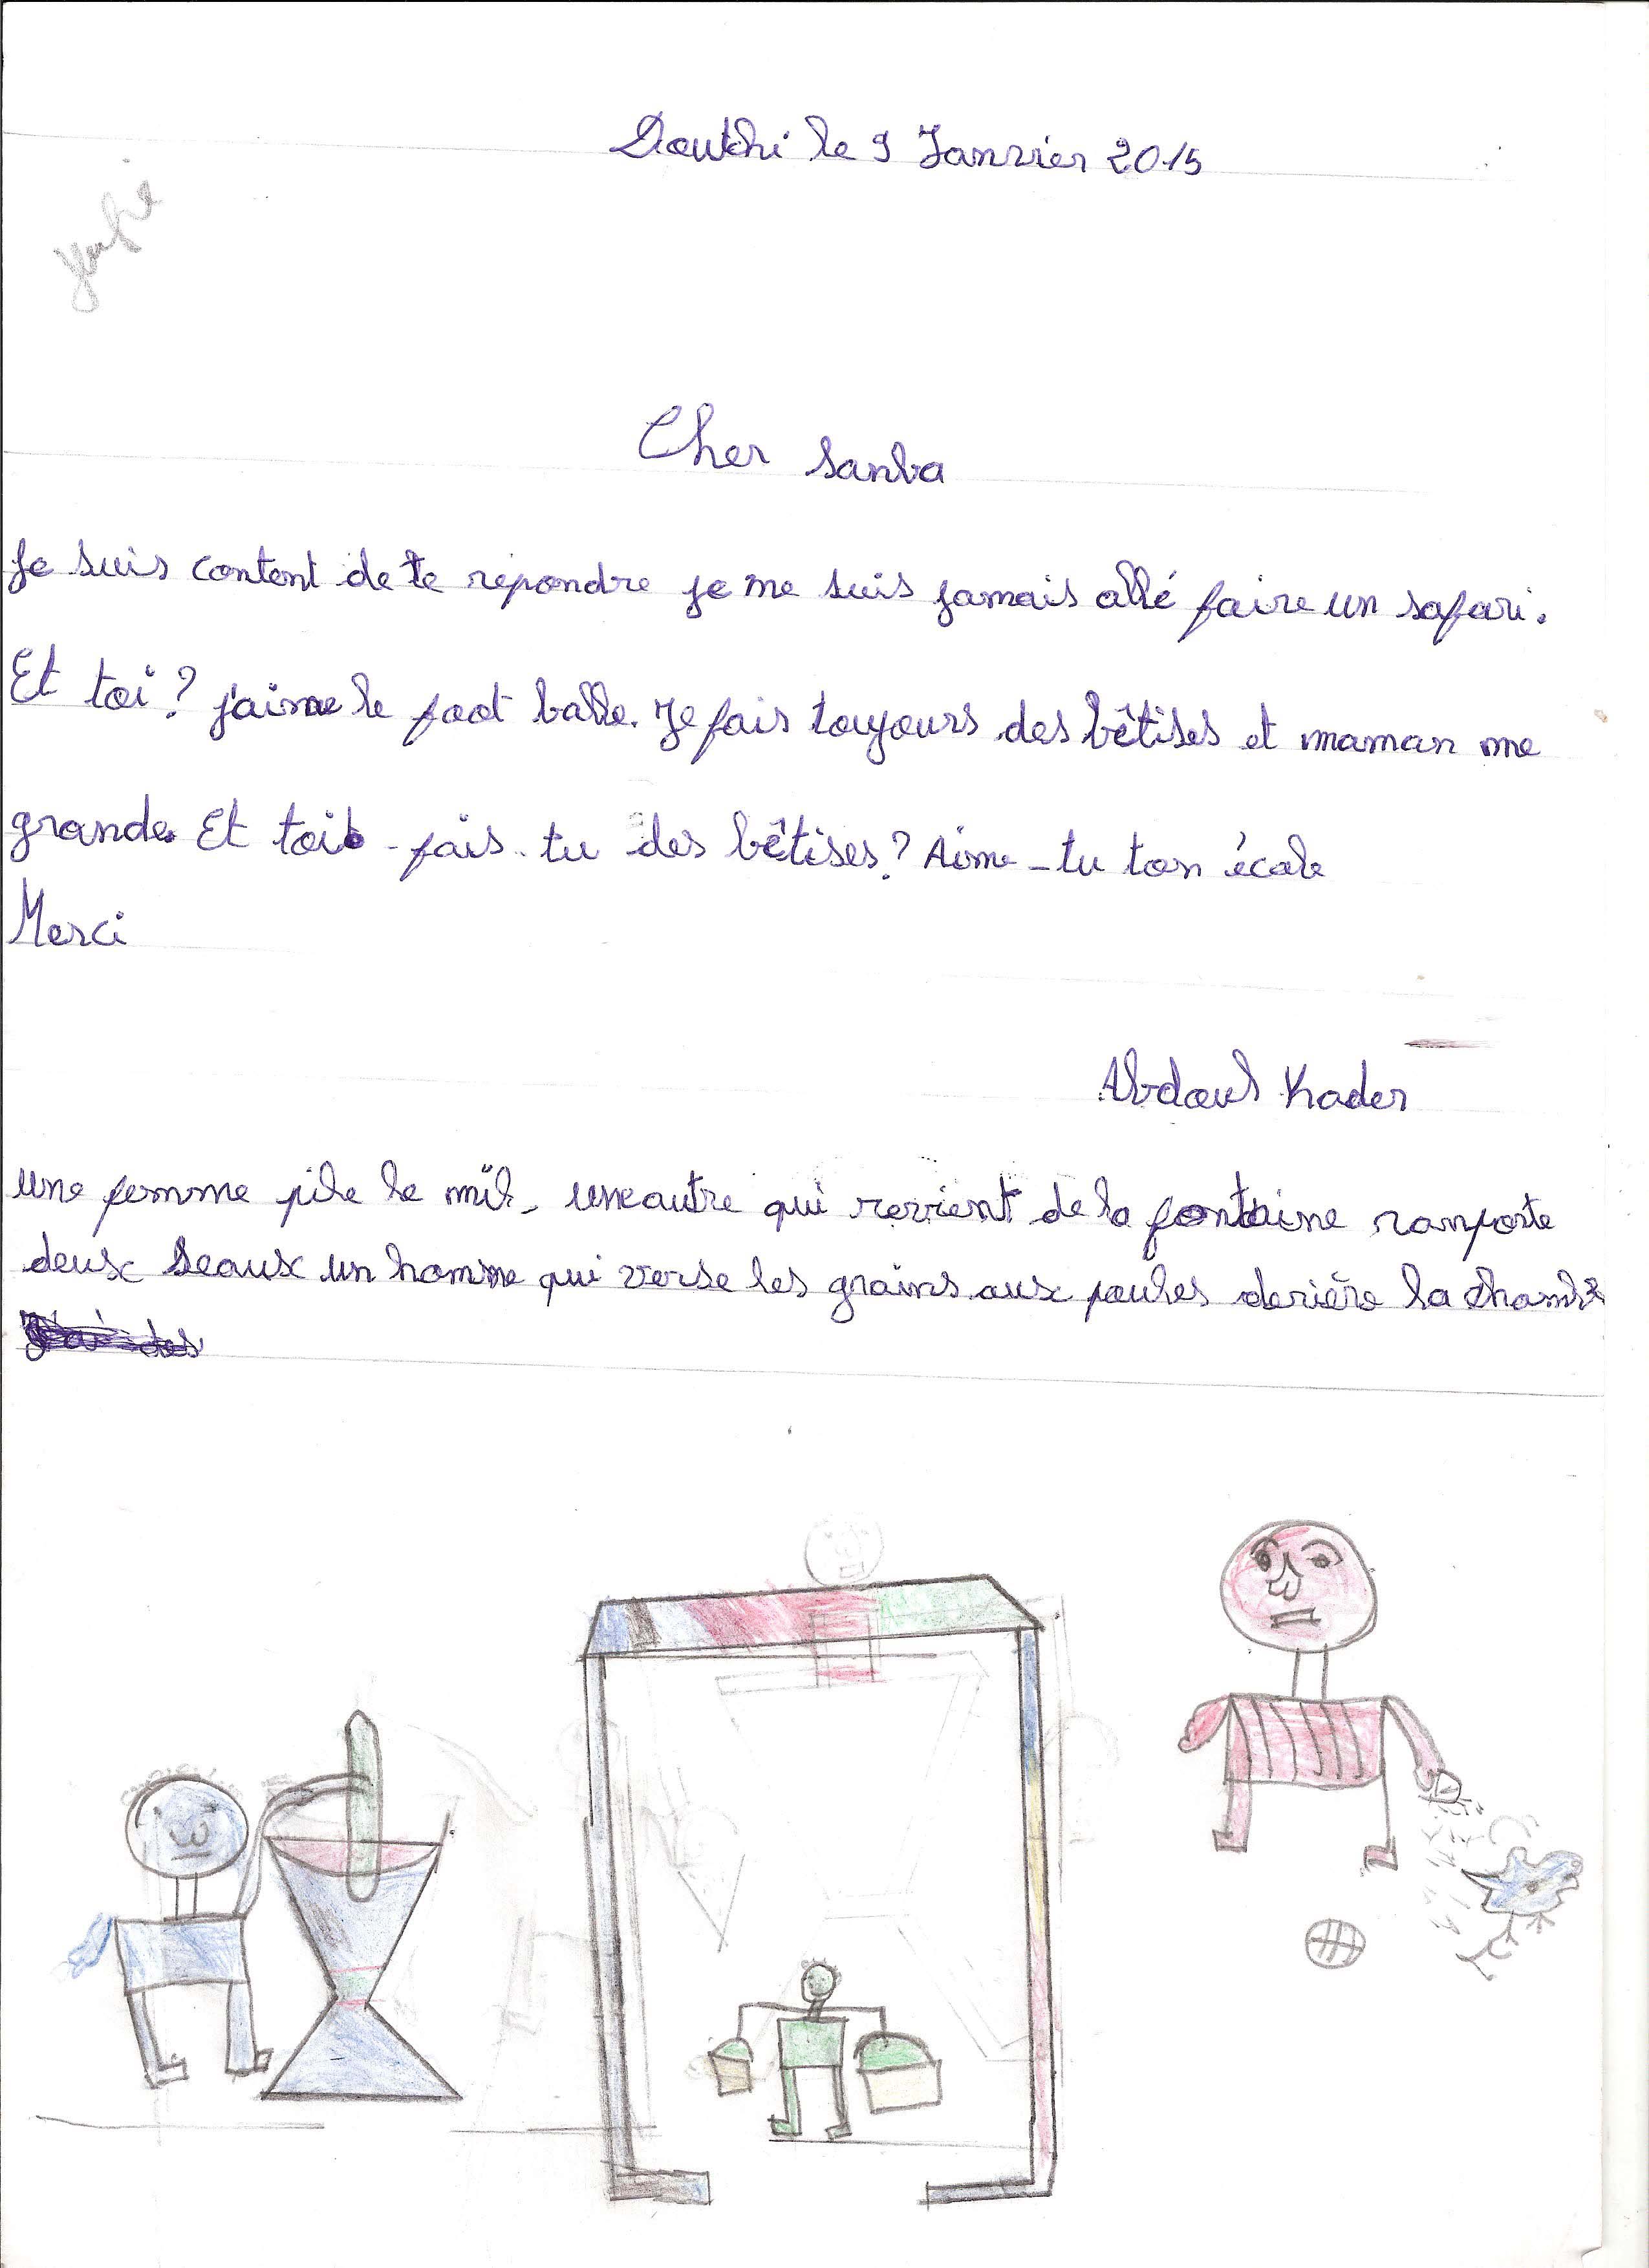 Doutchi le 9 Janvier 2015
Cher Sanba
Je suis content de te repondre je me suis jamais allé faire un safari.
Et toi? j'aime le foot balle. Je fais toujours des bêtises et maman me
grande. Et toi - fais - tu des bêtises? Aime - tu ton école
Merci
Abdoul Kader
une femme pile le mil, une autre qui revient de la fontaine ramporte
deux seaux un homme qui verse les grains aux poules derière la chambre